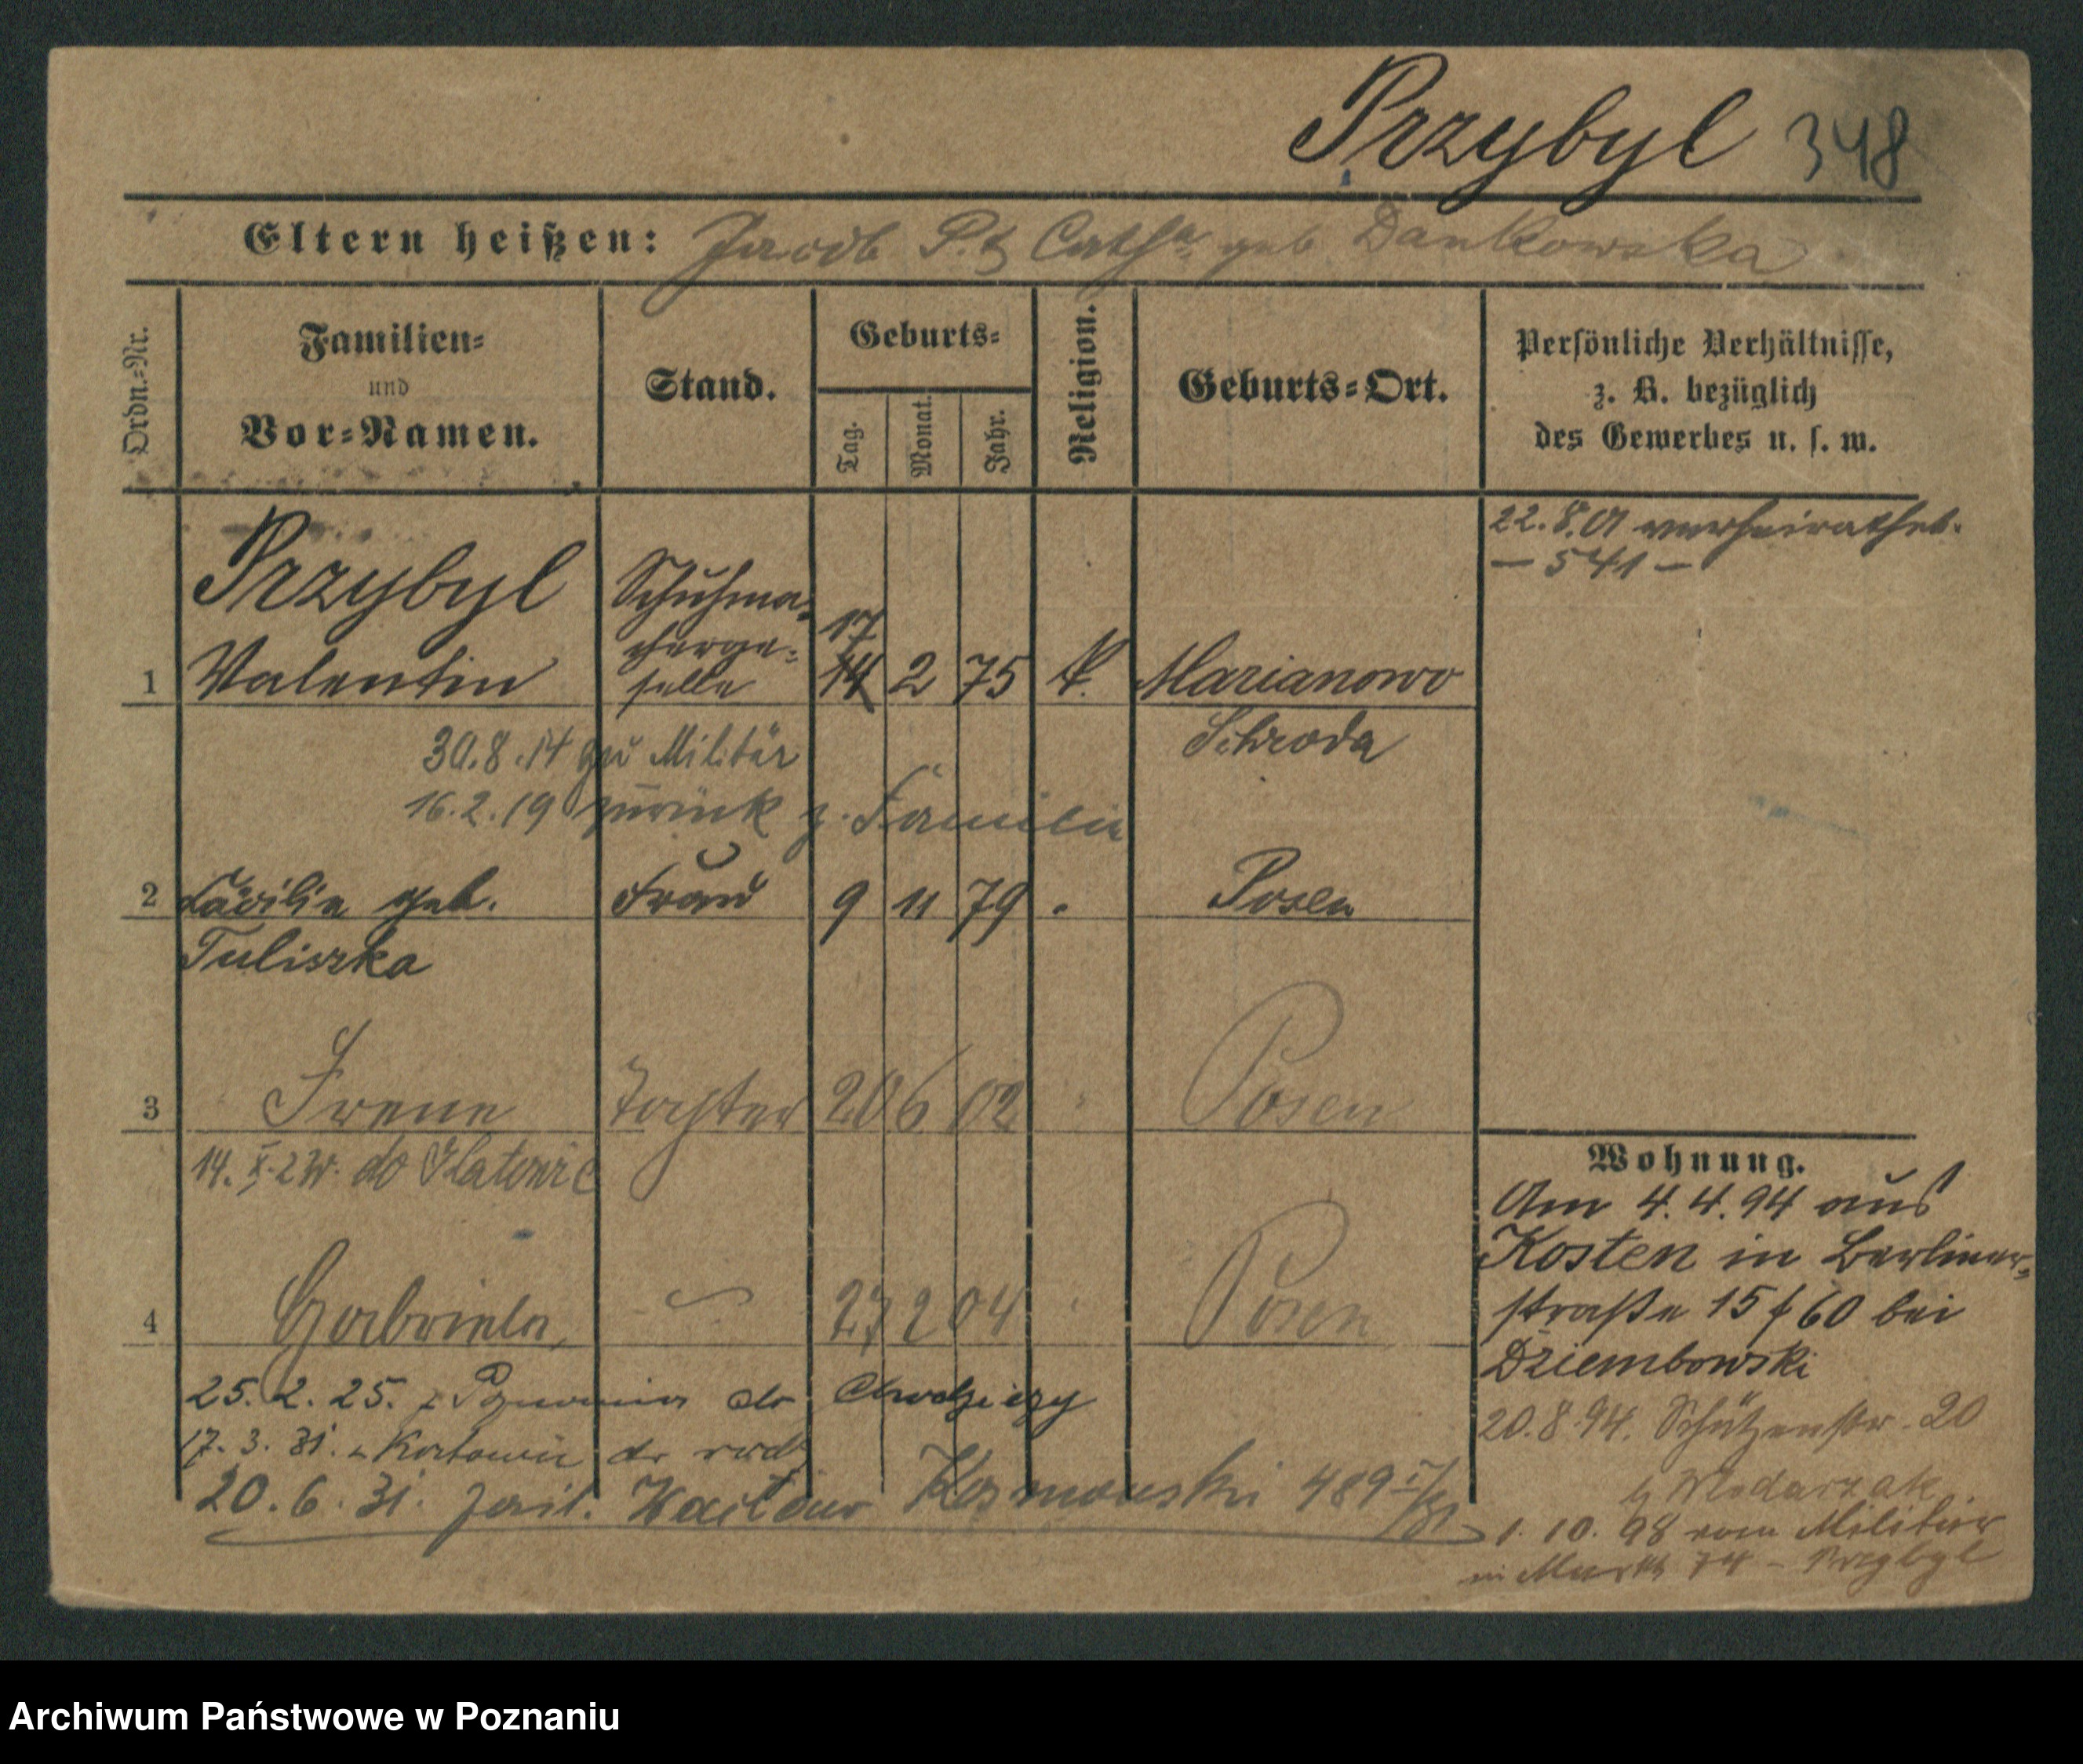 Przybyl 348
Eltern heißen: Jacob P. & Cath. geb. Dankowska
Ordn.-Nr.
Familien-
und
Vor-Namen.
Stand.
Geburts-
Tag.
Monat.
Jahr.
Religion.
Geburts-Ort.
Persönliche Verhältnisse,
z. B. bezüglich
des Gewerbes u. s. w.
22.8.01 verheirathet.
— 541 —
Przybyl
Schuhma-
17
cherge-
1 Valentin selle 14 2 75 k. Marianowo
Schroda
30.8.14 zu Militär
16.2.19 zurück z. Familie
2 Cäcilie geb. Frau 9 11 79 Posen
Tuliszka
3 Irene Tochter 20 6 02 " Posen
14. X. do Katowic
4 Gabriela 27 2 04 " Posen
25. 2. 25. z Poznania do Chodzieży
17. 3. 31. z Katowic do
20. 6. 31. Kosmowski 489
Wohnung.
Am 4. 4. 94 aus
Kosten in Berliner-
straße 15 f 60 bei
Dziembowski
20.8.94. Schützenstr. 20
b Wlodarzak
1. 10. 98 vom Militär
in Markt 74 - Przybyl
Archiwum Państwowe w Poznaniu